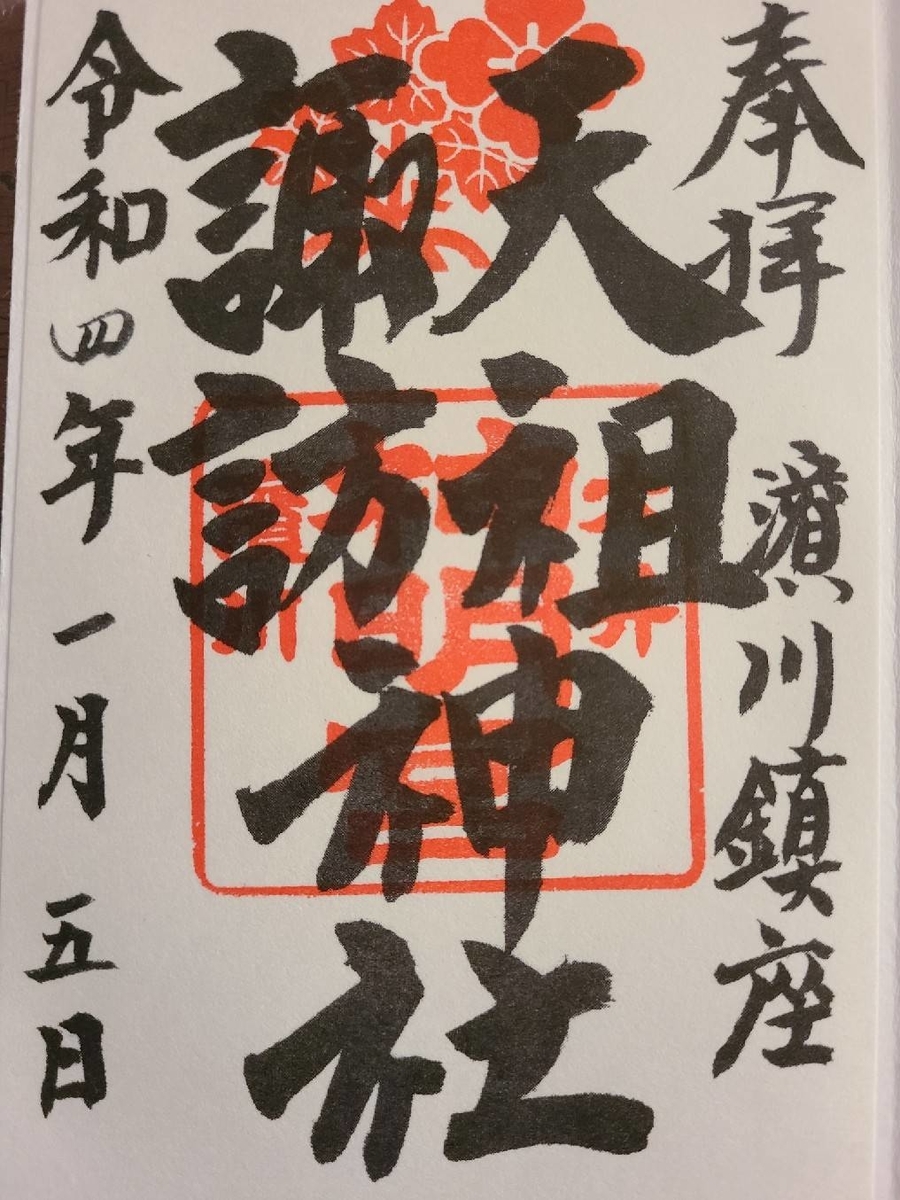 奉拝
濱川鎮座
天祖
諏訪
神社
令和四年一月五日